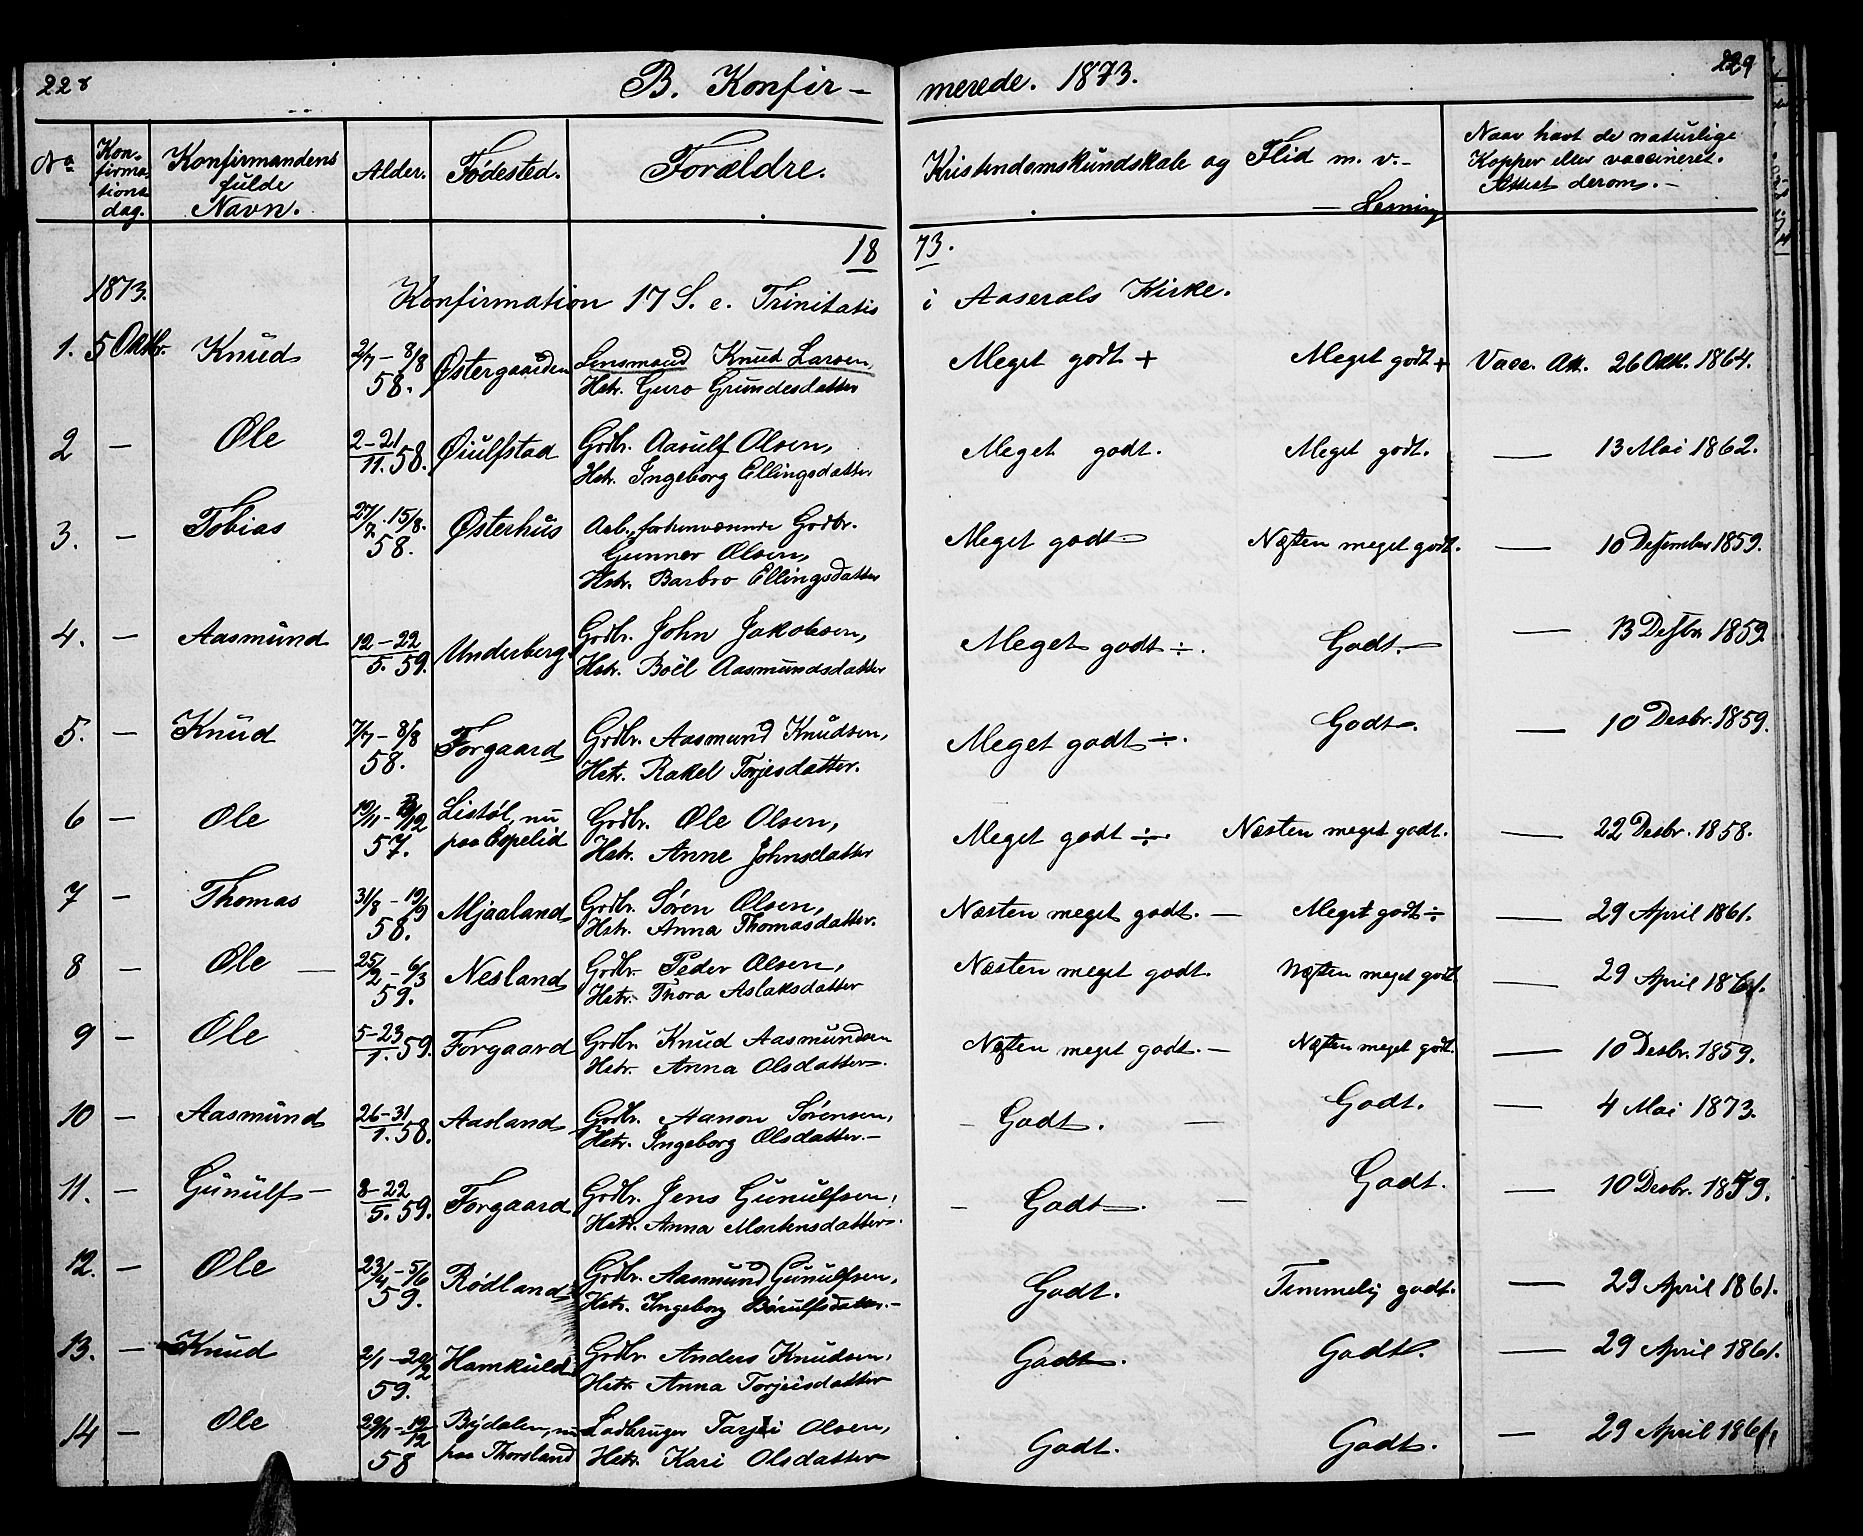 228 B. Konfir- merede. 1873. 229
No Kon-firma-tions dag. Konfirmandens fulde Navn. Alder. Fødested. Forældre. Kristendomskundskab og Flid m. v. - Havt de naturlige Kopper eller vaccineret. Attest derom. -
1873.
Konfirmation 17 S. e. Trinitatis i Aaserals Kirke.
1. 5 Oktbr. Knud 2/7 - 8/8 58. Østergaarden Lensmand Knud Larsen, Meget godt + Meget godt + Vacc. Att. 26 Oktb. 1864.
Hstr. Guro Grundesdatter
2 - Ole 2-21/11. 58. Øiulfstad Grdbr. Aasulf Olsen, Meget godt. Meget godt. — 13 Mai 1862.
Hstr. Ingeborg Ellingsdatter
3. - Tobias 27/7. 15/8. 58. Østerhus Arb., forhenværende Grdbr. Meget godt Næsten meget godt. — 10 Desember 1859.
Gunner Olsen,
Hstr. Barbro Ellingsdatter
4. - Aasmund 12-22/5. 59. Underberg. Grdbr. John Jakobsen, Meget godt ÷. Godt. — 13 Desbr 1859
Hstr. Boël Aasmundsdatter
5. - Knud 7/7 - 8/8 58. Forgaard Grdbr. Aasmund Knudsen, Meget godt ÷. Godt. — 10 Desbr. 1859.
Hstr. Rakel Torjesdatter.
6 - Ole 19/11 - /12 57. Listøl, nu paa Espelid Grdbr. Ole Olsen, Meget godt ÷. Næsten meget godt. — 22 Desbr. 1858.
Hstr. Anne Johnsdatter
7 - Thomas 31/8 - 19/9 58. Mjaaland Grdbr. Søren Olsen, Næsten meget godt. — Meget godt ÷ — 29 April 1861.
Hstr. Anna Thomasdatter.
8 - Ole — 25/2 - 6/3 59. Nesland Grdbr. Peder Olsen, Næsten meget godt. Næsten meget godt — 29 April 1861.
Hstr. Thora Aslaksdatter
9 - Ole 5-23/1. 59. Forgaard Grdbr. Knud Aasmundsen Næsten meget godt. — Næsten meget godt. — 10 Desbr. 1859.
Hstr. Anna Olsdatter.
10 - Aasmund 26-31/1. 58. Aasland Grdbr. Aanon Sørensen, - Godt. — Godt. — 4 Mai 1873.
Hstr. Ingeborg Olsdatter. -
11. - Gunulf - 8-22/5. 59. Forgaard Grdbr. Jens Gunulfsen, - Godt. — Godt. — 10 Desbr. 1859.
Hstr. Anna Mortensdatter.
12. - Ole 23/4 - 5/6 59. Rødland Grdbr. Aasmund Gunulfsen, Godt. Temmelig godt. — 29 April 1861.
Hstr. Ingeborg Børulfsdatter. -
13. - Knud 2/1 - /2 59. Hamkuld Grdbr. Anders Knudsen, Godt. Godt. — 29 April 1861.
Hstr. Anna Torjeisdatter
14 - Ole 29/11 - 12/12 58 Bydalen, nu paa Thorsland Ladbruger Tarjei Olsen, Godt. Godt. — 29 April 1861.
Hstr. Kari Olsdatter